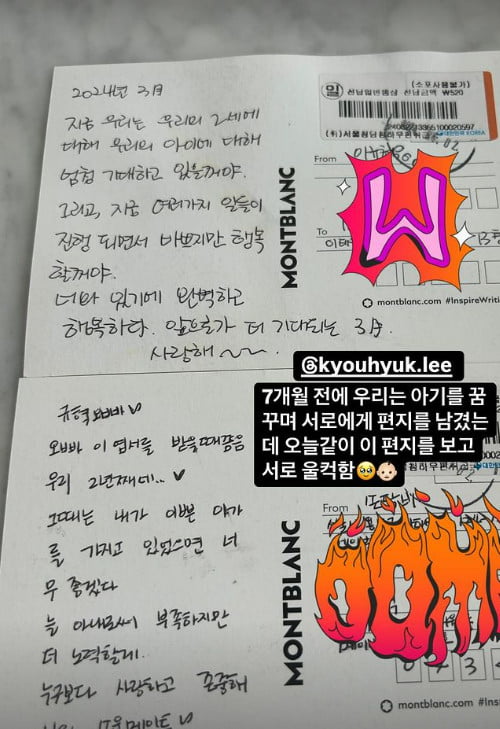 2024년 3月
지금 우리는 우리의 2세에
대해 우리의 아이에 대해
엄첨 기대하고 있을꺼야.
그리고, 지금 여러가지 일들이
진행 되면서 바쁘지만 행복
할꺼야.
너와 있기에 완벽하고
행복하다. 앞으로가 더 기대되는 3月.
사랑해~~.
(소포사용불가)
선납일반통상 선납금액 ₩520
대한민국 KOREA
From
To
MONTBLANC
W
montblanc.com #InspireWriti
@kyouhyuk.lee
7개월 전에 우리는 아기를 꿈
꾸며 서로에게 편지를 남겼는
데 오늘같이 이 편지를 보고
서로 울컥함🥹👶🏻
규혁오빠
오빠 이 엽서를 받을때쯤음
우리 2년째데..
그때는 내가 이쁜 아가
를 가지고 있었으면 너
무 좋겠다
늘 아내로써 부족하지만
더 노력할게.
누구보다 사랑하고 존중해
From
MONTBLANC
montblanc.com #Ins